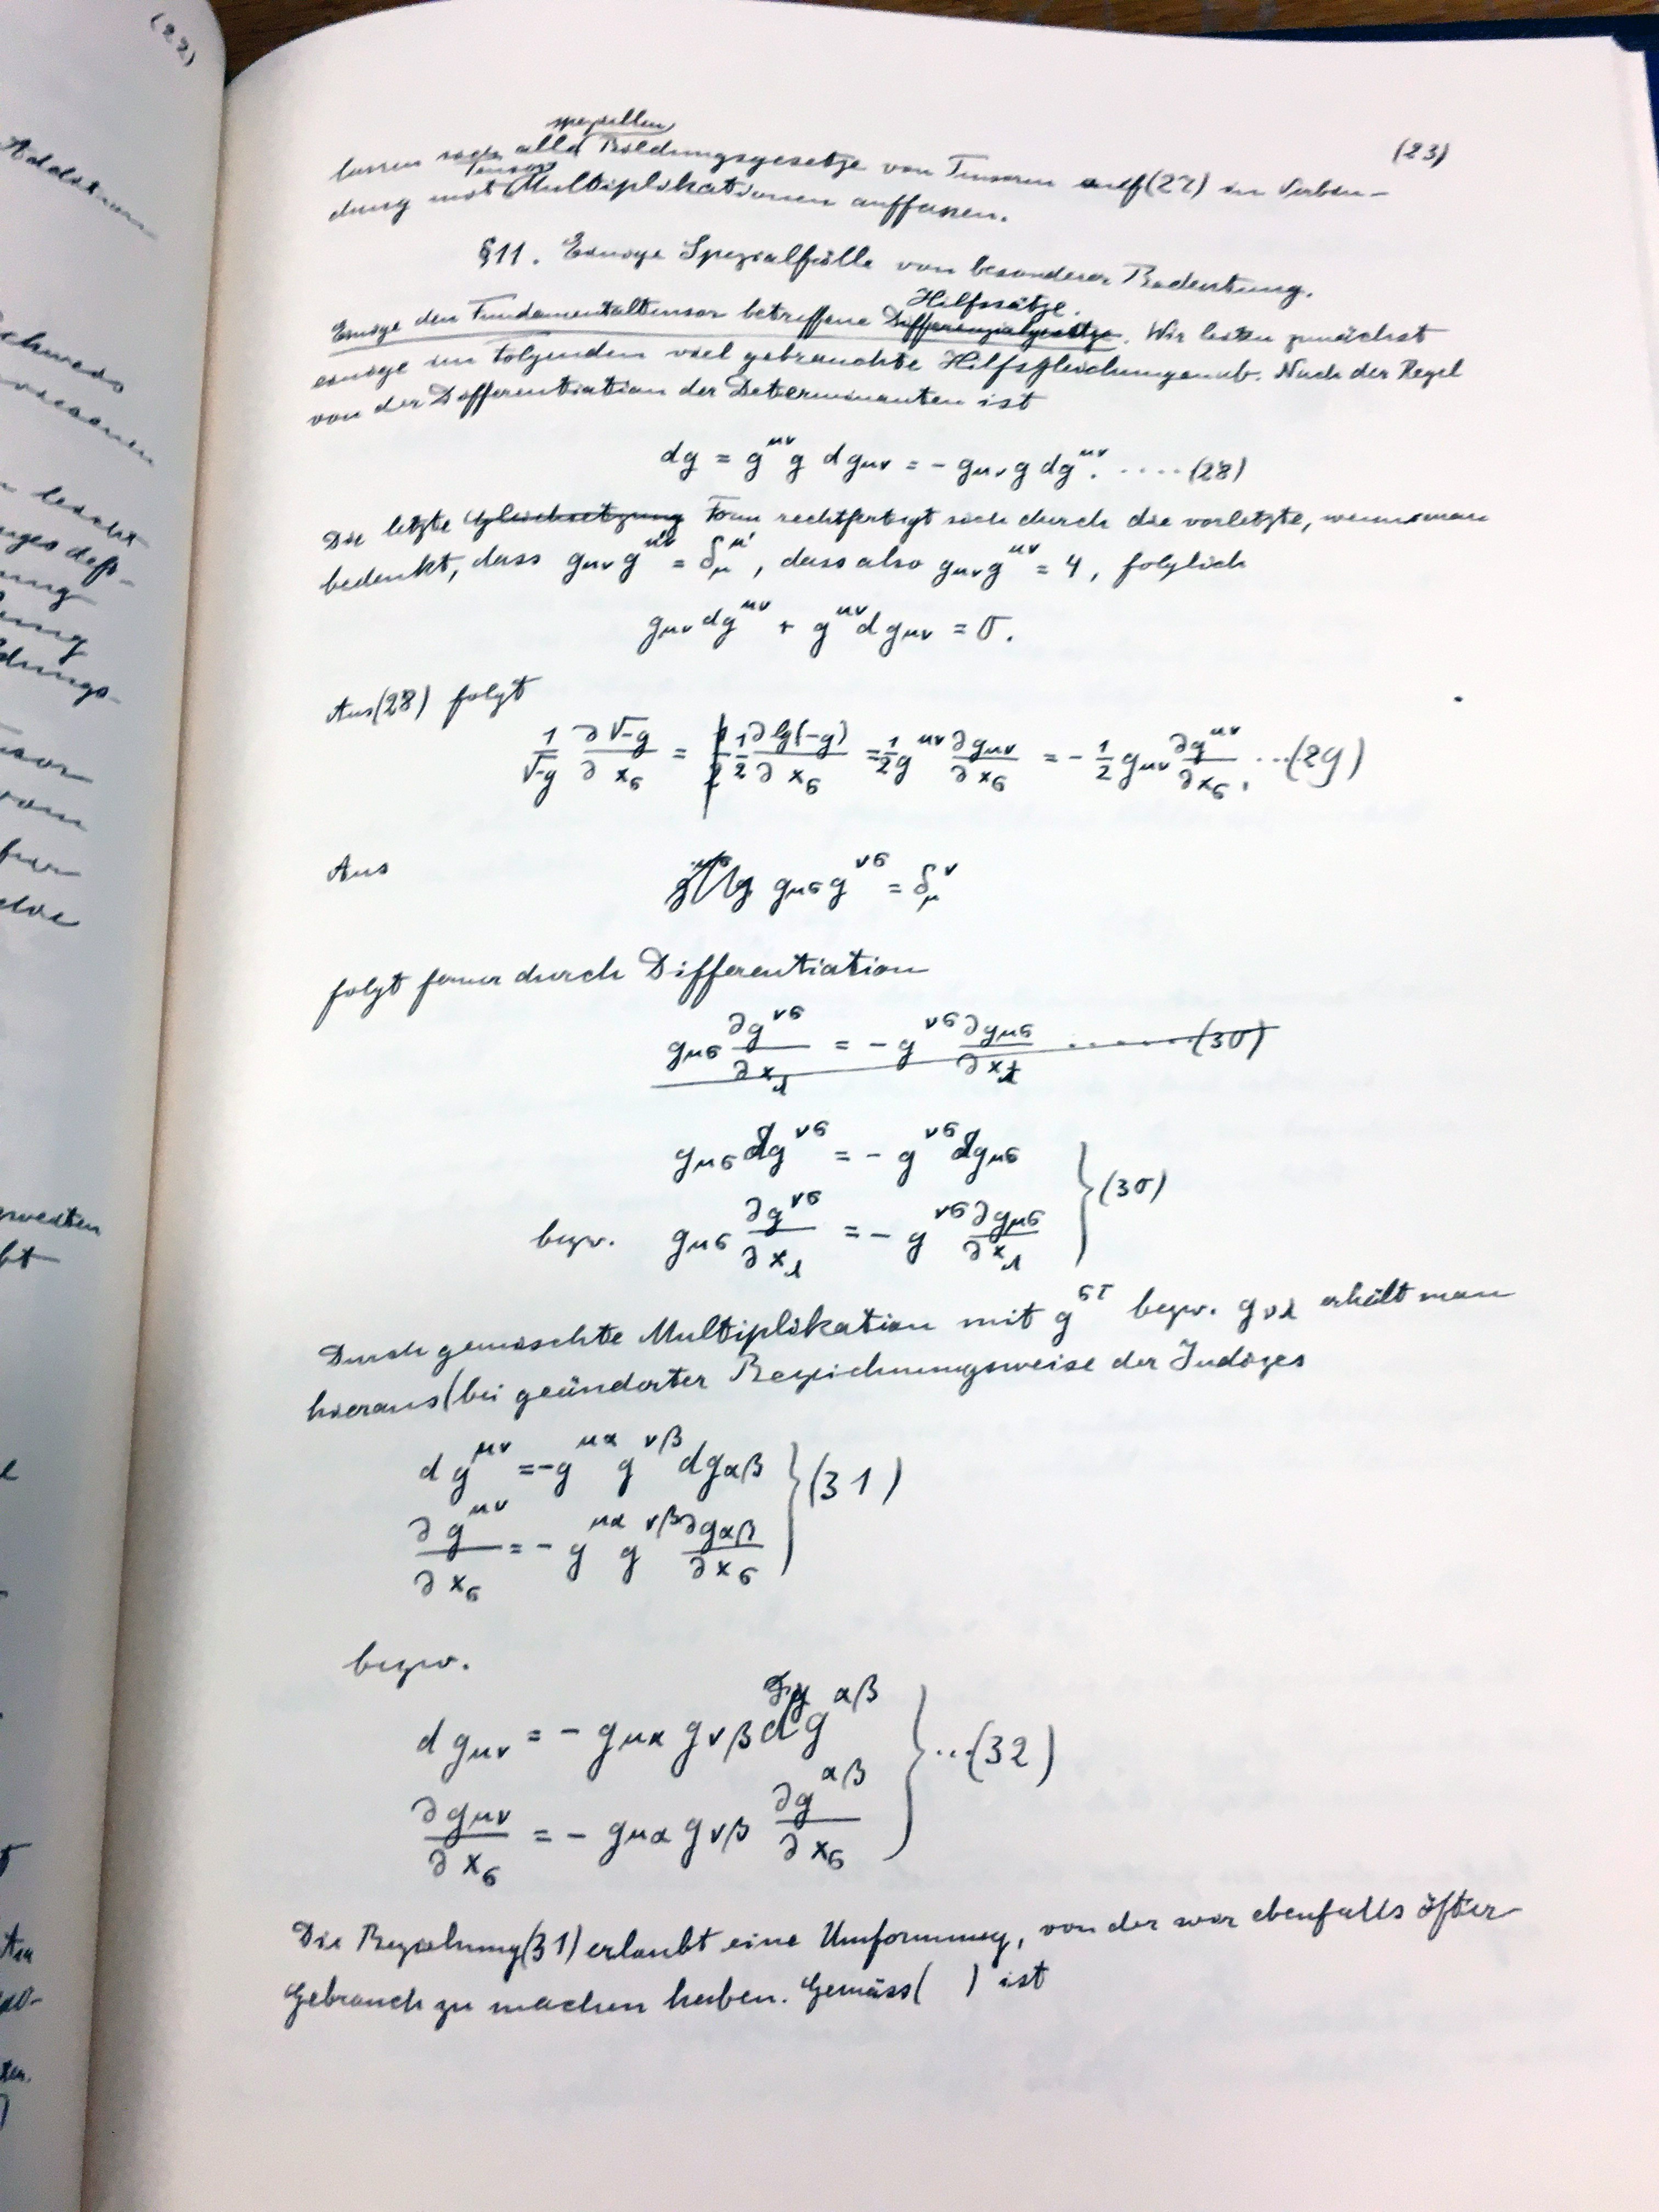 (22)
Addition
(23)
speziellen
lassen sich alle Bildungsgesetze von Tensoren auf (27) in Verbin-
Tensor
dung mit Multiplikationen auffassen.
§11. Einige Spezialfälle von besonderer Bedeutung.
Hilfssätze.
Einige den Fundamentaltensor betreffene Differenzialgesetze. Wir leiten zunächst
einige im folgenden viel gebrauchte Hilfsgleichungen ab. Nach der Regel
von der Differentiation der Determinanten ist
dg = g^{μν} g dg_{μν} = - g_{μν} g dg^{μν}. .... (28)
Die letzte Gleichsetzung Form rechtfertigt sich durch die vorletzte, wenn man
bedenkt, dass g_{μν} g^{μ'ν} = δ_μ^{μ'}, dass also g_{μν} g^{μν} = 4, folglich
g_{μν} dg^{μν} + g^{μν} dg_{μν} = 0.
Aus (28) folgt
1/√-g ∂√-g/∂x_σ = 1/2 ∂lg(-g)/∂x_σ = 1/2 g^{μν} ∂g_{μν}/∂x_σ = - 1/2 g_{μν} ∂g^{μν}/∂x_σ. ...(29)
Aus
g_{μσ} g^{νσ} = δ_μ^ν
folgt ferner durch Differentiation
g_{μσ} ∂g^{νσ}/∂x_λ = - g^{νσ} ∂g_{μσ}/∂x_λ ........(30)
g_{μσ} dg^{νσ} = - g^{νσ} dg_{μσ}
bezw. g_{μσ} ∂g^{νσ}/∂x_λ = - g^{νσ} ∂g_{μσ}/∂x_λ } (30)
Durch gemischte Multiplikation mit g^{στ} bezw. g_{νλ} erhält man
hieraus (bei geänderter Bezeichnungsweise der Indizes
dg^{μν} = - g^{μα} g^{νβ} dg_{αβ}
∂g^{μν}/∂x_σ = - g^{μα} g^{νβ} ∂g_{αβ}/∂x_σ } (31)
bezw.
dg_{μν} = - g_{μα} g_{νβ} dg^{αβ}
∂g_{μν}/∂x_σ = - g_{μα} g_{νβ} ∂g^{αβ}/∂x_σ } ...(32)
Die Beziehung (31) erlaubt eine Umformung, von der wir ebenfalls öfter
Gebrauch zu machen haben. Gemäss ( ) ist